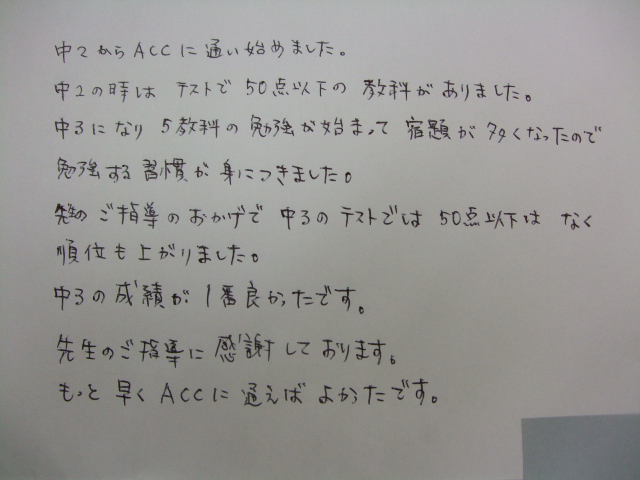 中2からACCに通い始めました。
中2の時は テストで 50点以下の 教科が ありました。
中3になり 5教科の 勉強が始まって 宿題が 多くなったので
勉強する習慣が 身につきました。
先生のご指導のおかげで 中3の テストでは 50点以下は なく
順位も上がりました。
中3の成績が 1番良かったです。
先生のご指導に 感謝しております。
もっと 早く ACCに 通えば よかったです。